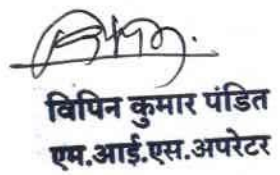 विपिन कुमार पंडित
एम.आई.एस.अपरेटर